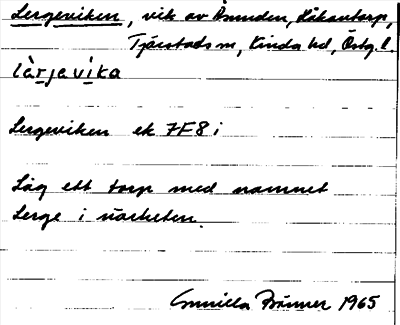 Lergeviken, vik av Åsunden, Håkantorp,
Tjärstads sn, Kinda hd, Östg. l.
lærjevika
Lergeviken ek 7F8i
Låg ett torp med namnet
Lerge i närheten.
Gunilla 1965